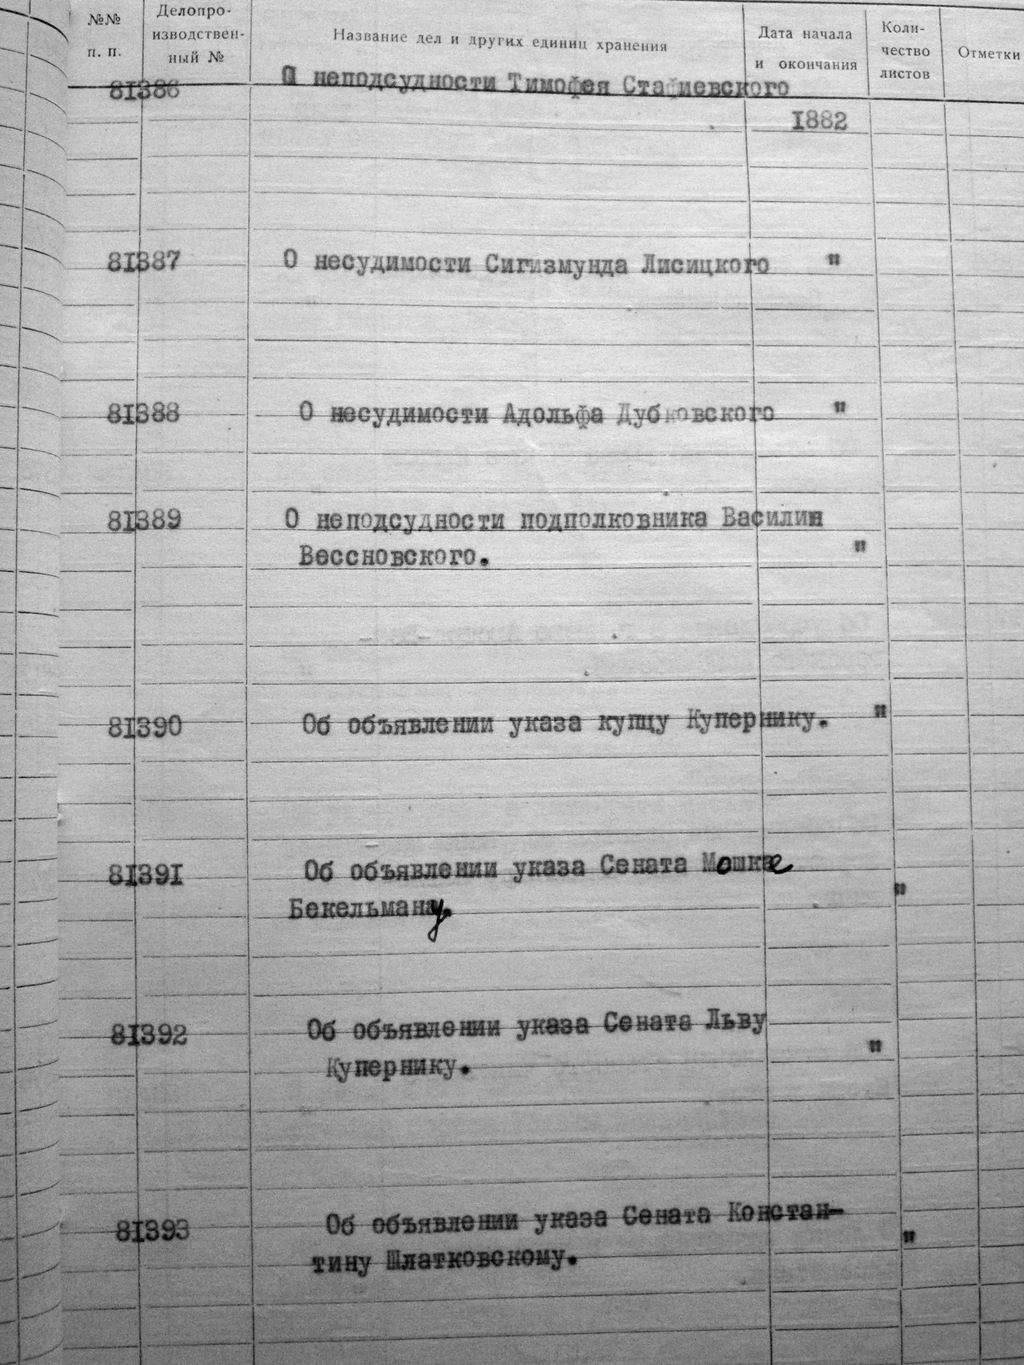 №№
п. п.
Делопро-
изводствен-
ный №
Название дел и других единиц хранения
Дата начала
и окончания
Коли-
чество
листов
Отметки
81386 О неподсудности Тимофея
1882
81387 О несудимости Сигизмунда Лисицкого "
81388 О несудимости Адольфа Дубковского "
81389 О неподсудности подполковника Василия
Вессновского. "
81390 Об объявлении указа купцу Купернику. "
81391 Об объявлении указа Сената Мошке
Бекельману. "
81392 Об объявлении указа Сената Льву
Купернику. "
81393 Об объявлении указа Сената Констан-
тину Шлатковскому. "